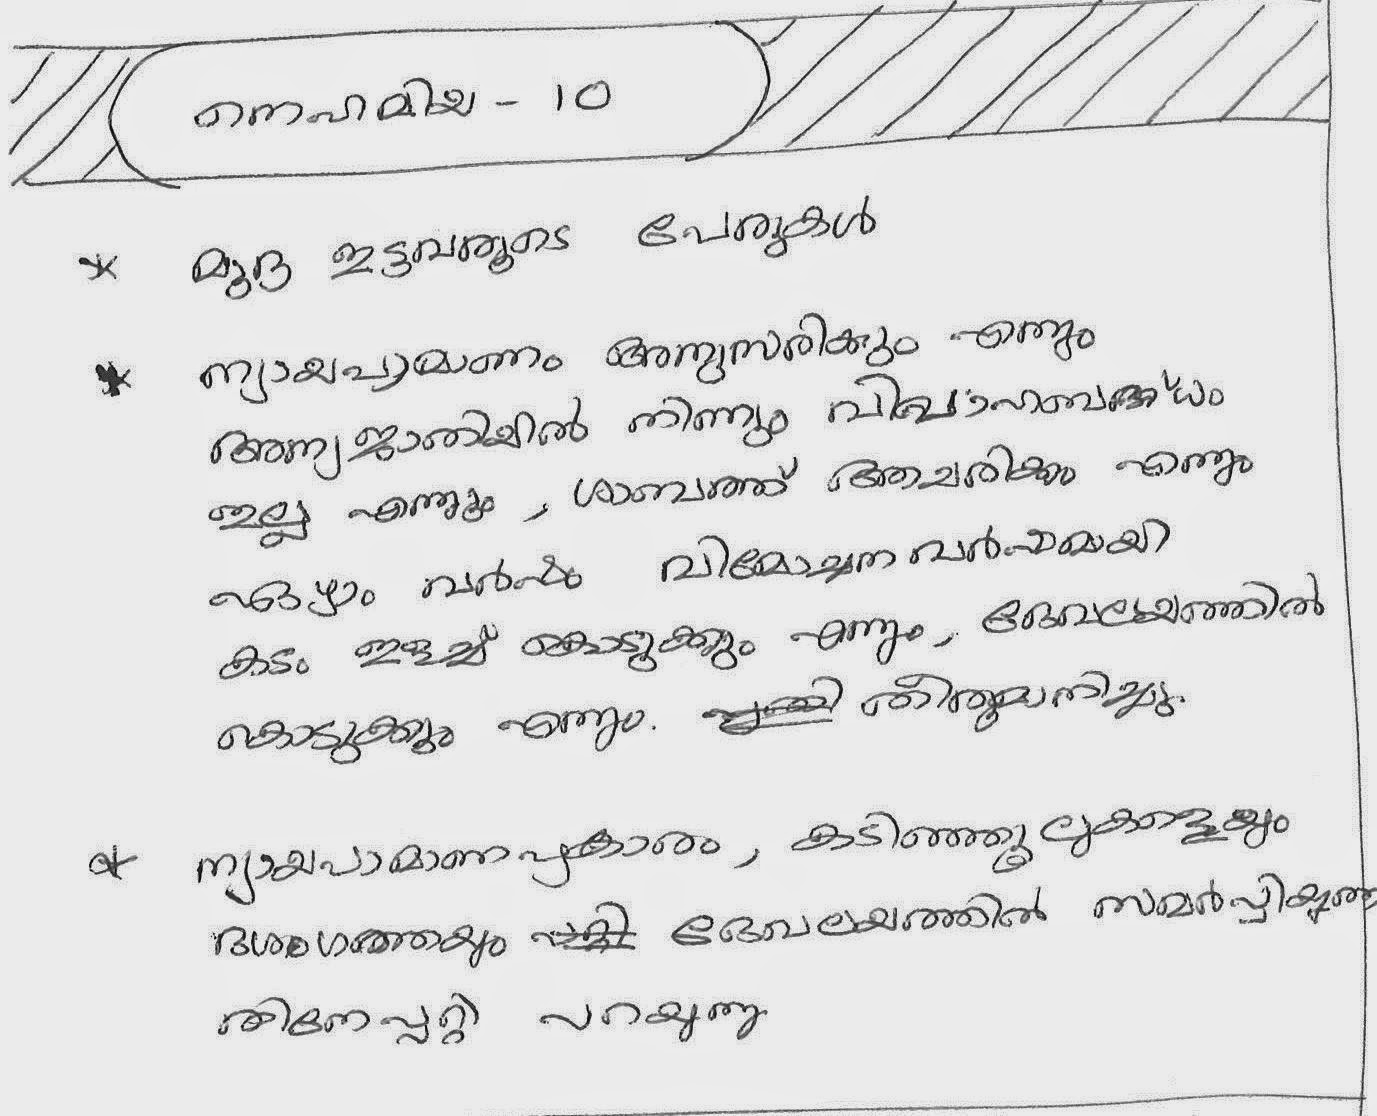 നെഹമിയ - 10
* മുദ്ര ഇട്ടവരുടെ പേരുകൾ
* ന്യായപ്രമാണം അനുസരിക്കും എന്നും
അന്യജാതിയിൽ നിന്നും വിവാഹബന്ധം
ഇല്ല എന്നും, ശാബത്ത് ആചരിക്കും എന്നും
ഏഴാം വർഷം വിമോചന വർഷമായി
കടം ഇളച്ച് കൊടുക്കും എന്നും, ദേവാലയത്തിൽ
കൊടുക്കും എന്നും. തീരുമാനിച്ചു.
* ന്യായപ്രമാണപ്രകാരം, കടിഞ്ഞൂലുകളെയും
ദശാംശത്തെയും ദേവലയത്തിൽ സമർപ്പിയ്ക്കുന്ന
തിനേപ്പറ്റി പറയുന്നു